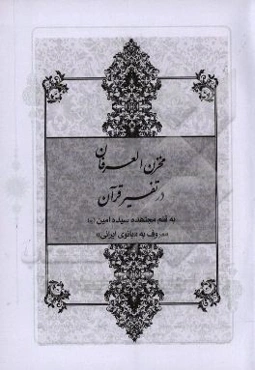 مخزن العرفان
در تفسیر قرآن
به قلم مجتهده سیده امین (ره)
معروف به «بانوی ایرانی»